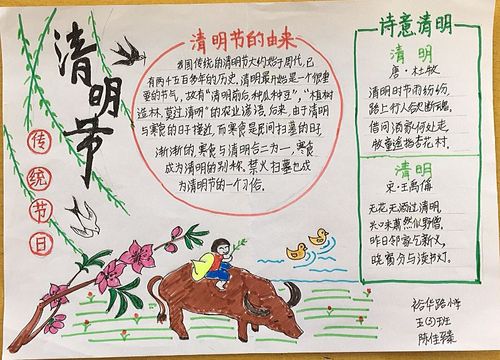 清明节
传统节日
清明节的由来
我国传统的清明节大约始于周代,已
有两千五百多年的历史,清明最开始是一个很重
要的节气,故有“清明前后,种瓜种豆”,“植树
造林,莫过清明”的农业谚语,后来,由于清明
与寒食的日子接近,而寒食是民间扫墓的日,
渐渐的,寒食与清明合二为一,寒食
成为清明的别称,禁火扫墓也成
为清明节的一个习俗。
诗意清明
清明
唐·杜牧
清明时节雨纷纷,
路上行人欲断魂。
借问酒家何处走,
牧童遥指杏花村。
清明
宋·王禹偁
无花无酒过清明,
兴味萧然似野僧。
昨日邻家乞新火,
晓窗分与读书灯。
裕华路小学
五(3)班
陈佳